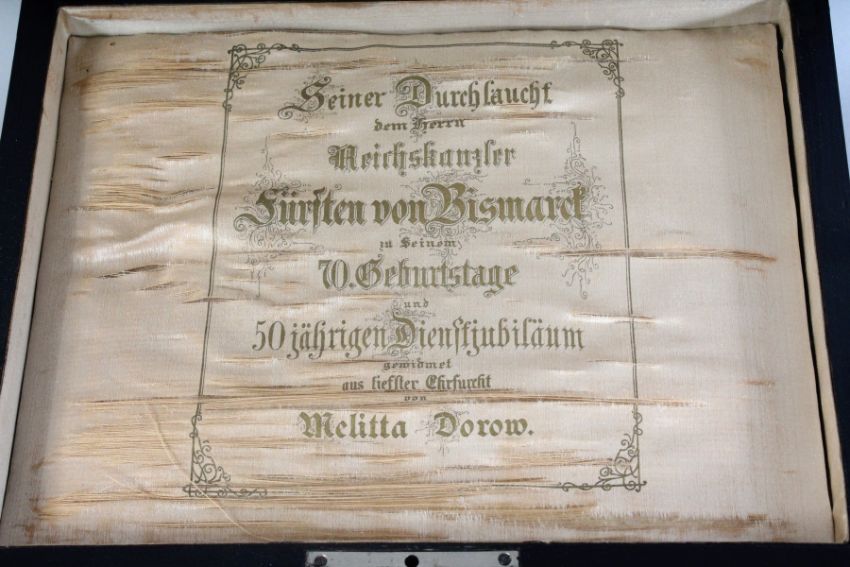 Seiner Durchlaucht
dem Herrn
Reichskanzler
Fürsten von Bismarck
zu Seinem
70. Geburtstage
und
50 jährigen Dienstjubiläum
gewidmet
aus tiefster Ehrfurcht
von
Melitta Dorow.